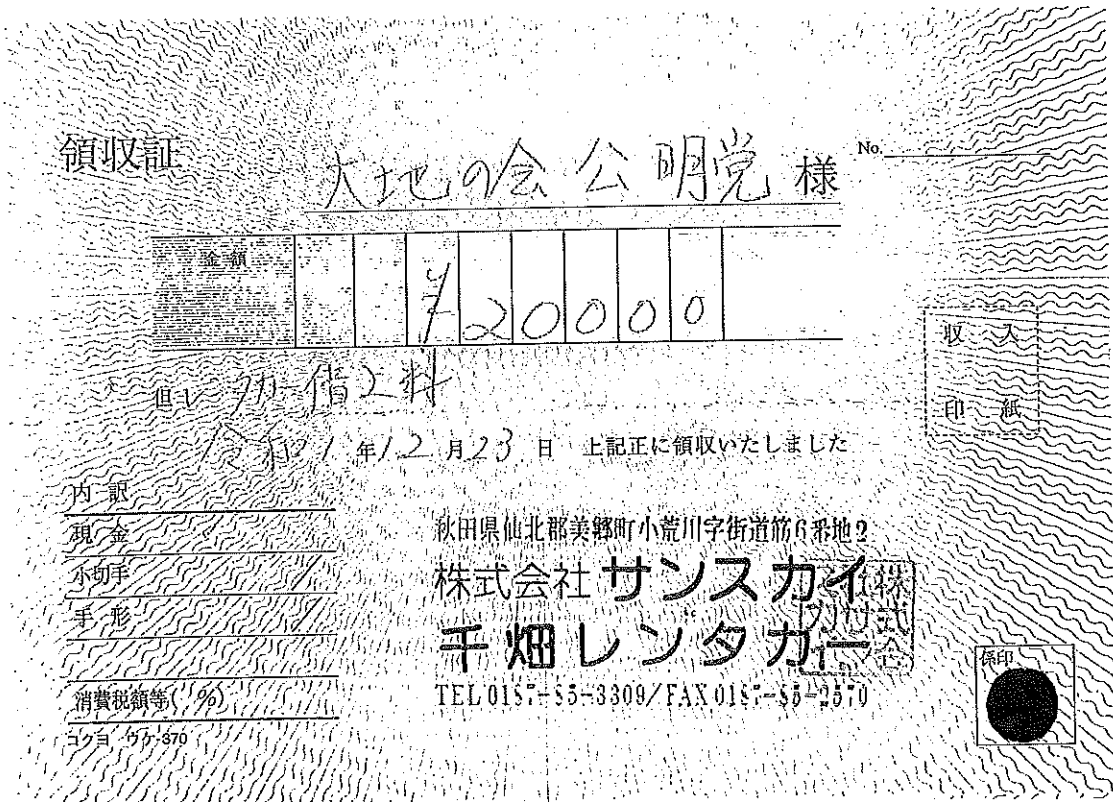 領収証
No.
大地の会 公明党 様
金額
¥20000
但し 借上料
令和1年12月23日 上記正に領収いたしました
収入
印紙
内訳
現金
小切手
手形
消費税額等( %)
コクヨ ウケ-370
秋田県仙北郡美郷町小荒川字街道筋6番地2
株式会社 サンスカイ
千畑レンタカー
TEL 0187-85-3309/FAX 0187-85-2570
係印